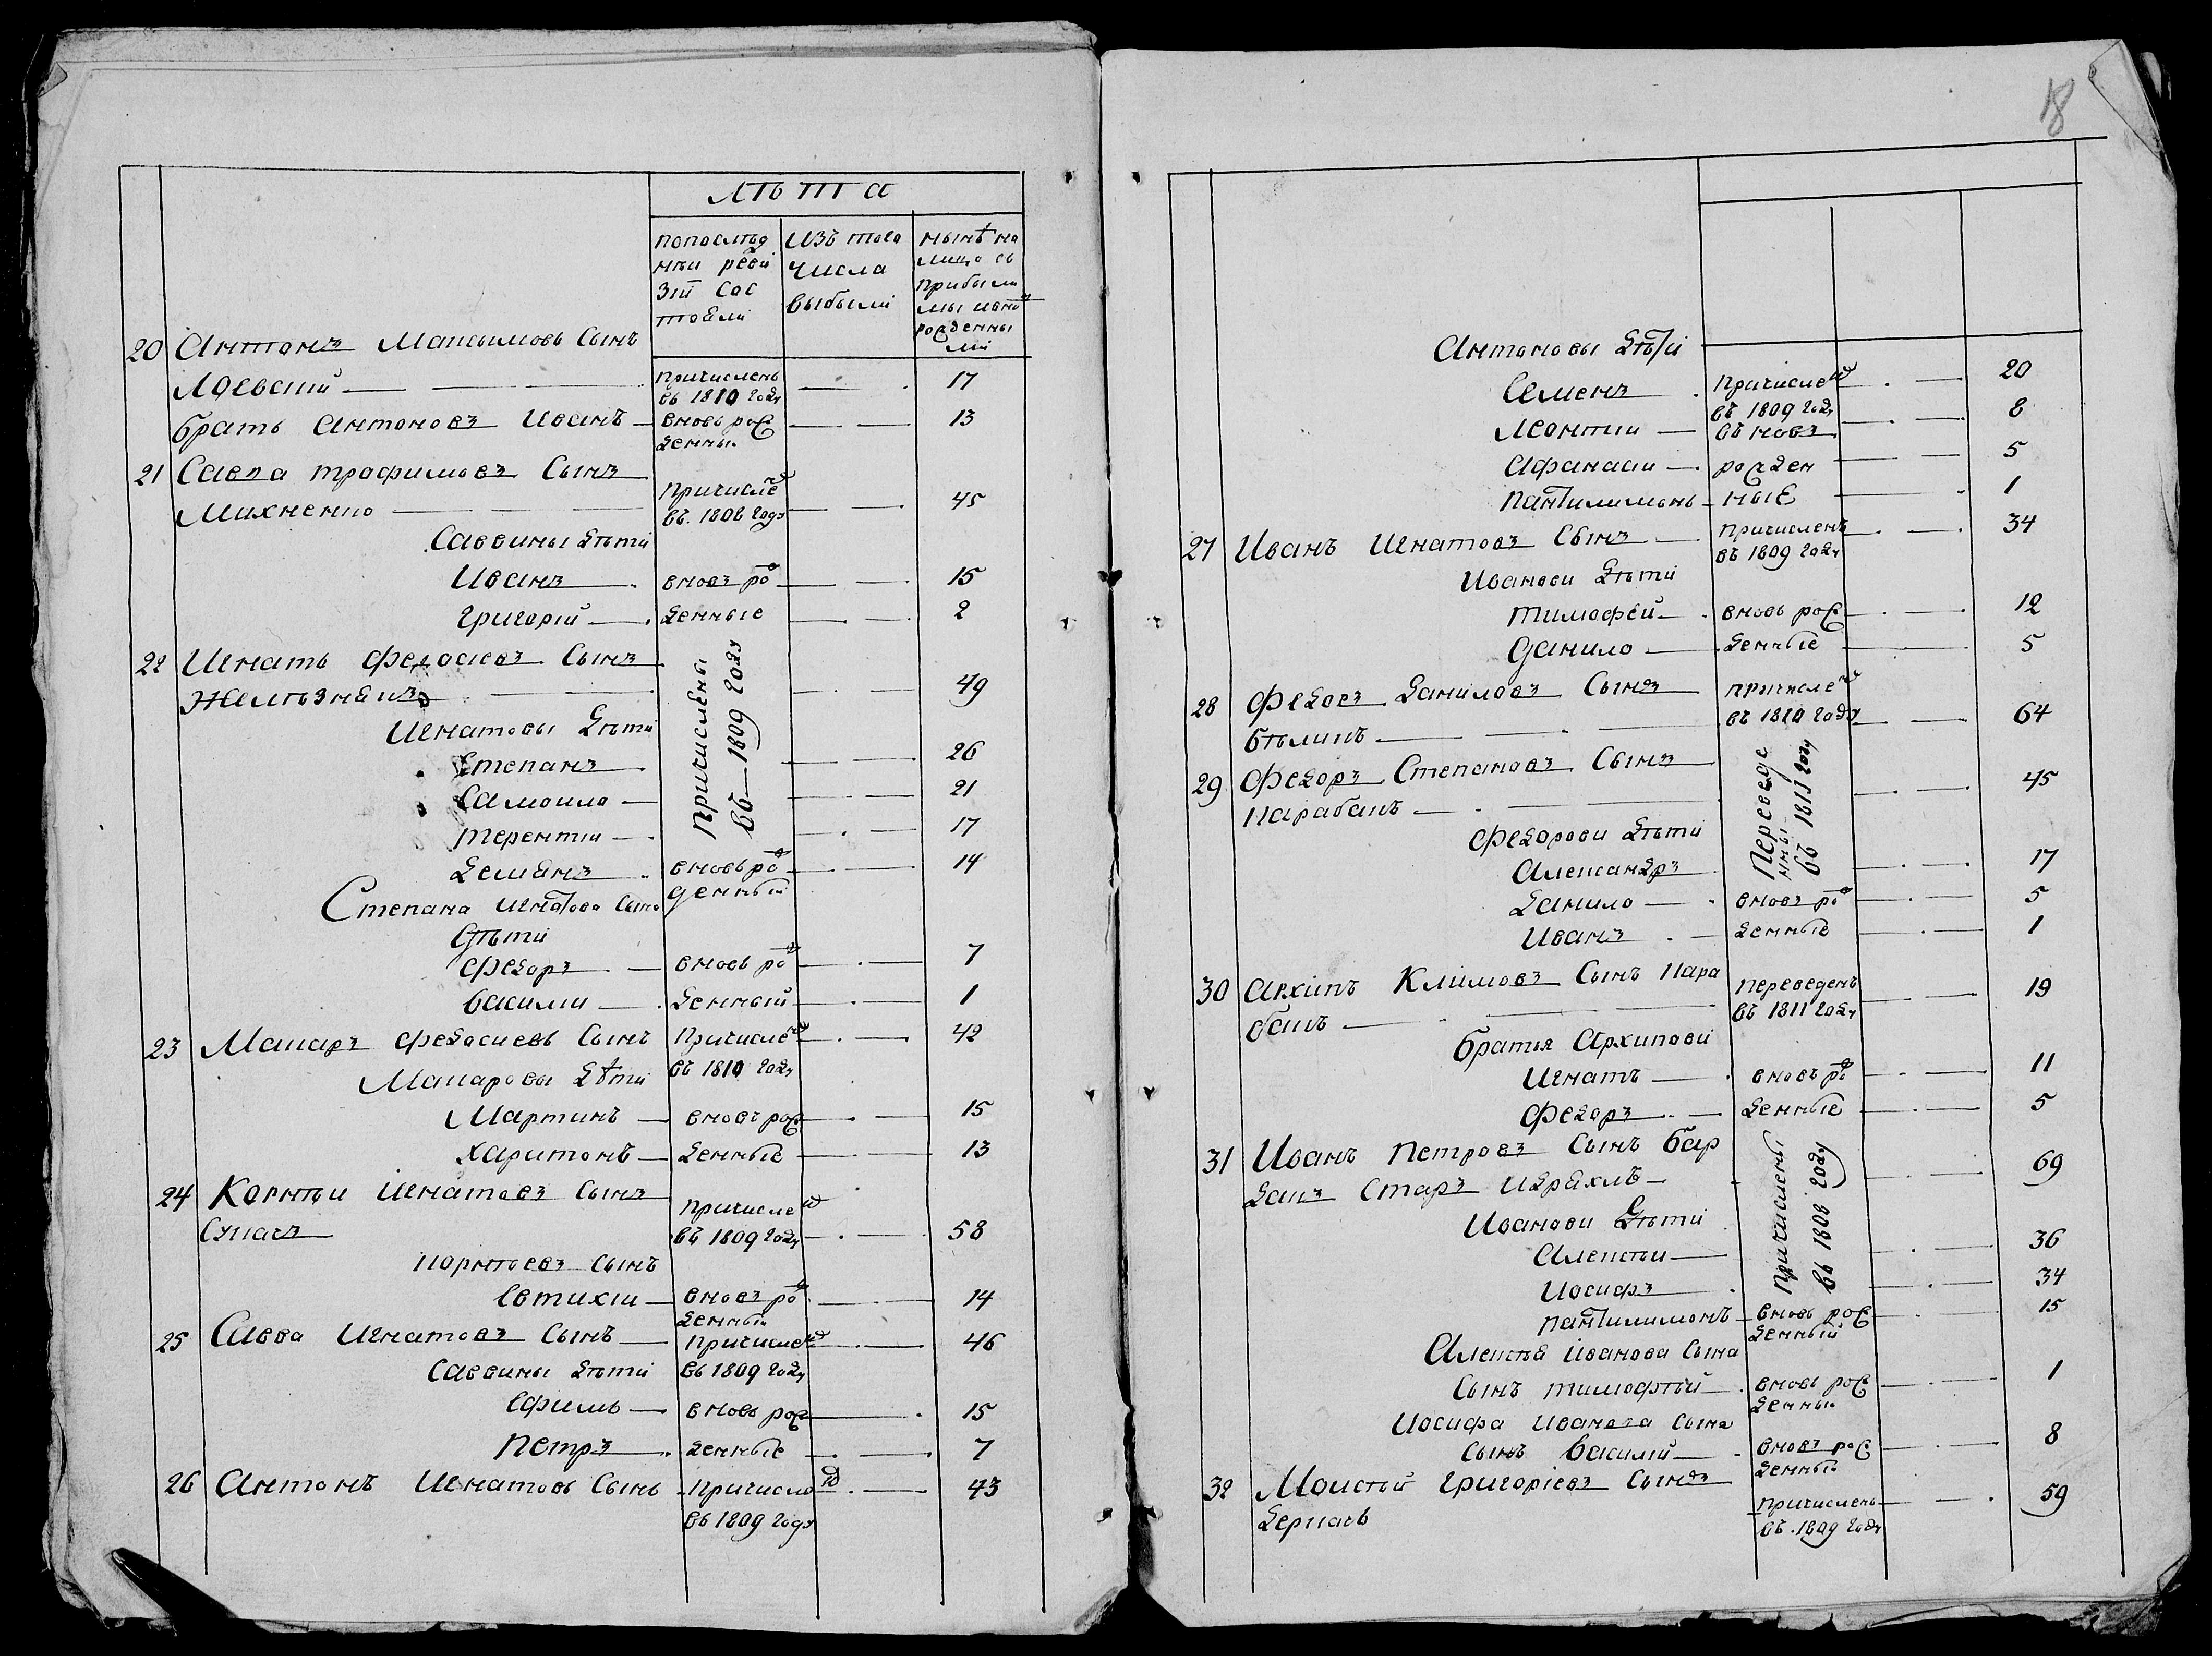 18
Лѣта
попослѣд ней реви зіи сос тояли
изъ того числа выбыли
нынѣ на лицо съ прибылы мы и вно рожденны ми
20 Антонъ Максимовъ Сынъ
Лоевскій причисленъ въ 1810 году 17
братъ Антоновъ Иванъ вновь рож денны 13
21 Савка трофимовъ Сынъ
Михненко причислен въ. 1808 году 45
Саввины дѣти
Иванъ вновь рож 15
григорій денные 2
22 Игнатъ Федосіевъ Сынъ
Желѣзнякъ причислены въ 1809 году 49
Игнатовы дѣти
Степанъ 26
Самоило 21
терентіи 17
демянъ вновь рож денный 14
Степана игнатова сына
дѣти
Федоръ вновь рож 7
василіи денный 1
23 Макаръ Федосиевъ Сынъ причислен 42
Макаровы дѣти въ 1810 году
Мартинъ вновъ рож 15
харитонъ денные 13
24 Корнѣи Игнатовъ Сынъ
причислен въ 1809 году 58
корнѣевъ сынъ
Евтихіи вновъ рож денный 14
25 Савва Игнатовъ Сынъ причислен 46
Саввины дѣти въ 1809 году
Ефимъ вновь рож 15
петръ денные 7
26 Антонъ Игнатовъ Сынъ причислен 43
въ 1809 году
Антоновы дѣти
Семенъ причислен 20
въ 1809 году
Леонтіи въновъ 8
Афанасіи рожден 5
пантилимонъ ныЕ 1
27 Иванъ Игнатовъ Сынъ причисленъ въ 1809 году 34
Иванови дѣти
тимофей вновь рож 12
данило денные 5
28 Федоръ даниловъ Сынъ причислен
бѣликъ въ 1810 году 64
29 Федоръ Степановъ Сынъ
карабанъ переведе нны въ 1811 году 45
Федорови дѣти
Александръ 17
данило вновъ рож 5
Иванъ денные 1
30 Архипъ Климовъ Сынъ Кара переведенъ
банъ въ 1811 году 19
братья Архипови
Игнатъ вновъ рож 11
Федоръ денные 5
31 Иванъ петровъ Сынъ бар
дакъ Старъ причислены въ 1808 году 69
Иванови дѣти
Алексѣи 36
Иосифъ 34
пантилимонъ вновь рож денный 15
Алексѣя иванова Сына
сынъ тимофѣй вновь рож денны 1
Иосифа иванова сына
сынъ василій вновъ рож денны 8
32 Моисѣй григоріевъ Сынъ
деркачъ причисленъ въ. 1809 году 59